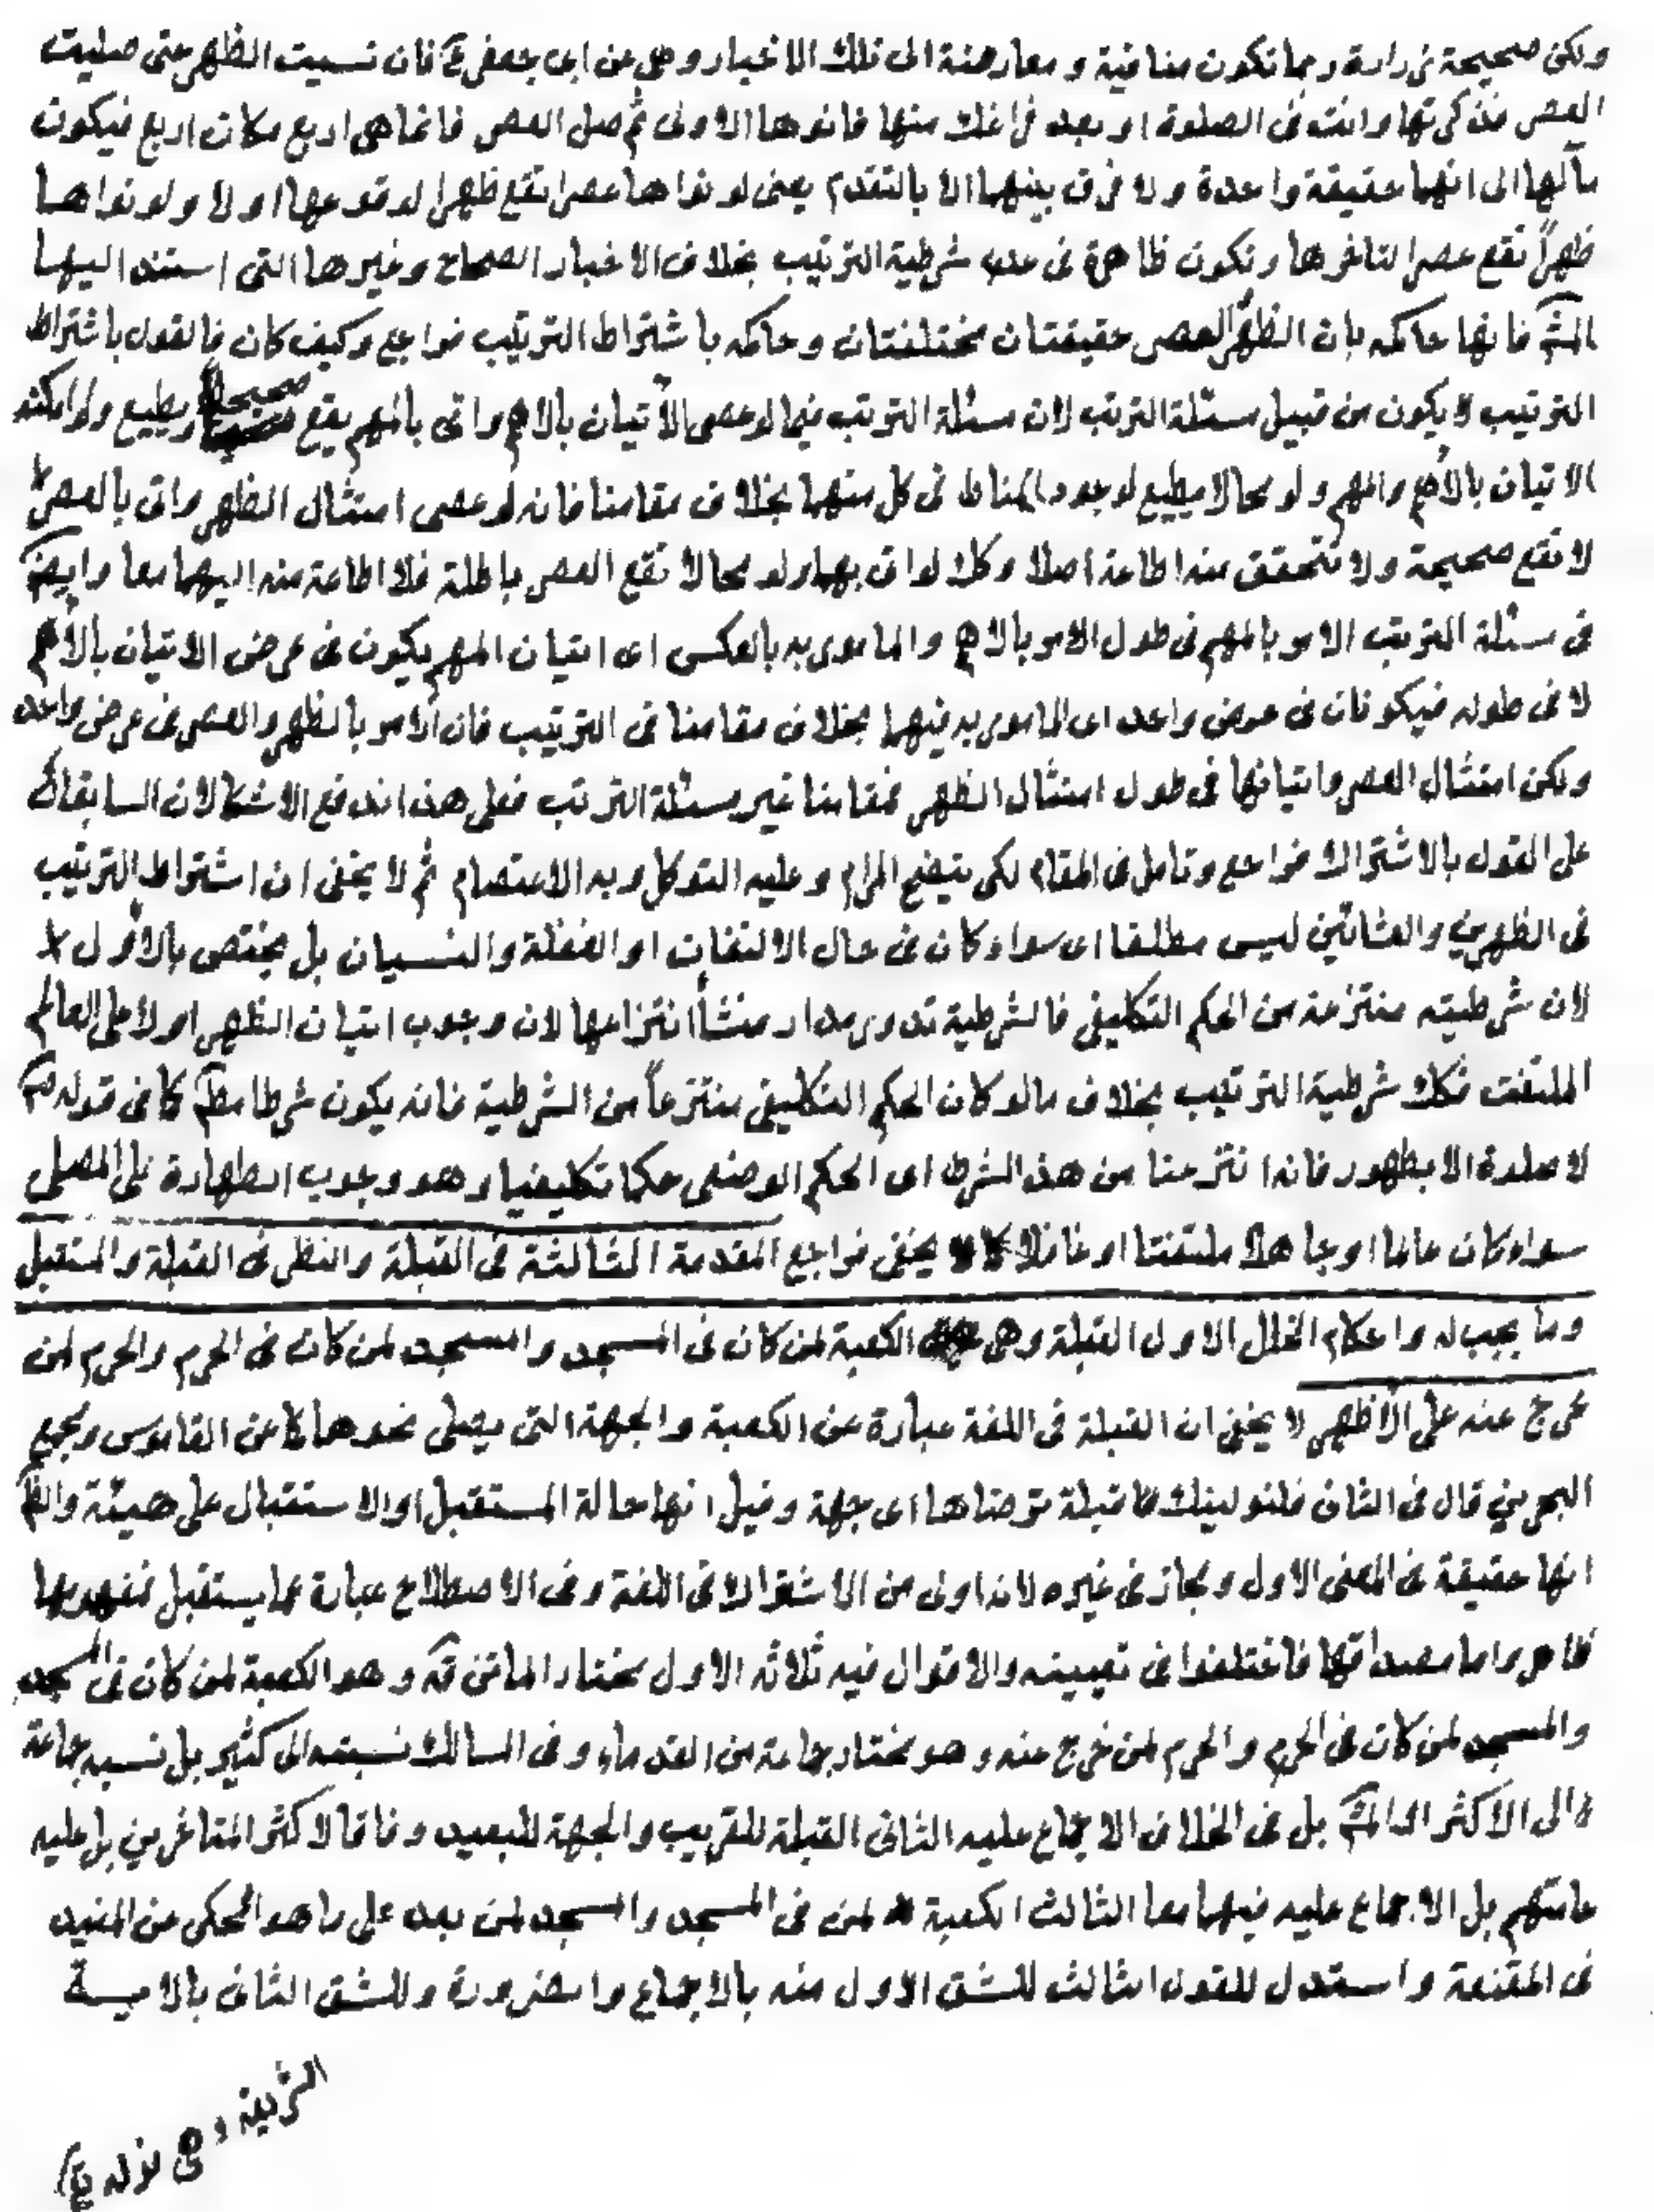 ولكن صحيحة زرارة ربما تكون منافية و معارضة الى تلك الاخبار وهي عن ابي جعفر ع فان نسيت الظهر حتى صليت
العصر فذكرتها وانت في الصلوة او بعد فراغك منها فانوها الاولى ثم صل العصر فانما هي اربع مكان اربع فيكون
مآلها الى انهما حقيقة واحدة ولا فرق بينهما الا بالتقدم يعنى لو نواها عصرا تقع ظهرا لوقوعها اولا ولو نواها
ظهراً تقع عصرا لتاخرها وتكون ظاهرة في عدم شرطية الترتيب بخلاف الاخبار الصحاح وغيرها التي استند اليها
المشهـ فانها حاكمه بان الظهر والعصر حقيقتان مختلفتان و حاكمه باشتراط الترتيب فراجع وكيف كان فالقول باشتراط
الترتيب لا يكون من قبيل مسئلة الترتب لان مسئلة الترتب فيما لو عصى الأتيان بالاهم واتى بالمهم يقع صحيحا ويطيع ولو امكنه
الاتيان بالأهم والمهم ولو محالا يطيع لوجود المناط في كل منهما بخلاف مقامنا فانه لو عصى امتثال الظهر واتى بالعصر
لا تقع صحيحة ولا تتحقق منه اطاعة اصلا وكك لو اتى بهما ولو محالا تقع العصر باطلة فلا اطاعة منه اليهما معا وايضـ
في مسئلة الترتب الامر بالمهم في طول الامر بالاهم والمامور به بالعكس اى اتيان المهم يكون في عرض الاتيان بالأهم
لا في طوله فيكونان في عرض واحد اى المامور به فيهما بخلاف مقامنا في الترتيب فان الامر بالظهر والعصر في عرض واحد
ولكن امتثال العصر واتيانها في طول امتثال الظهر فمقامنا غير مسئلة الترتب فعلى هذا اندفع الاشكالان السابقان
على القول بالاشتراك فراجع وتامل في المقام لكى يتضح المرام وعليه التوكل وبه الاعتصام ثم لا يخفى ان اشتراط الترتيب
في الظهرين والعشائين ليس مطلقا اى سواء كان في حال الالتفات او الغفلة والنسيان بل يختص بالاول
لان شرطيته منتزعة من الحكم التكليفي فالشرطية تدور مدار منشأ انتزاعها لان وجوب اتيان الظهر اولا على العالم
الملتفت فكك شرطية الترتيب بخلاف ما لو كان الحكم التكليفي منتزعاً من الشرطية فانه يكون شرطا مطـ كما في قوله
لا صلوة الا بطهور فانه انتزعنا من هذ الشرط اى الحكم الوضعى حكما تكليفيا وهو وجوب الطهارة على المصلى
سواء كان عالما او جاهلا ملتفتا او غافلا كما لا يخفى فراجع المقدمة الثالثة في القبلة والنظر في القبلة والمستقبل
وما يجب له واحكام الخلل الاول القبلة وهى الكعبة لمن كان في المسجد والمسجد لمن كان في الحرم والحرم لمن
خرج عنه على الأظهر لا يخفى ان القبلة في اللغة عبارة عن الكعبة والجهة التى يصلى نحوها كما عن القاموس ومجمع
البحرين قال في الثانى فلنولينك قبلة ترضاها اى جهة وقيل انها حالة المستقبل او الاستقبال على هيئة والظـ
انها حقيقة في المعنى الاول ومجاز في غيره لانه اولى من الاشتراك في اللغة وفى الاصطلاح عبارة عما يستقبل فمفهومها
ظاهر واما مصداقها فاختلفوا في تعيينه والاقوال فيه ثلاثه الاول مختار الماتن قه وهو الكعبة لمن كان في المسجد
والمسجد لمن كان في الحرم والحرم لمن خرج عنه وهو مختار جماعة من القدماء وفى المسالك نسبته الى كثير بل نسبه جماعة
الى الاكثر او المشهـ بل في الخلاف الاجماع عليه الثانى القبلة للقريب والجهة للبعيد وفاقا لاكثر المتاخرين بل عليه
عامتهم بل الاجماع عليه فيهما معا الثالث الكعبة لمن في المسجد والمسجد لمن بعد على ما هو المحكى من المفيد
في المقنعة واستدل للقول الثالث للشق الاول منه بالاجماع والضرورة وللشق الثانى بالآية
الشريفة و هى قوله تع